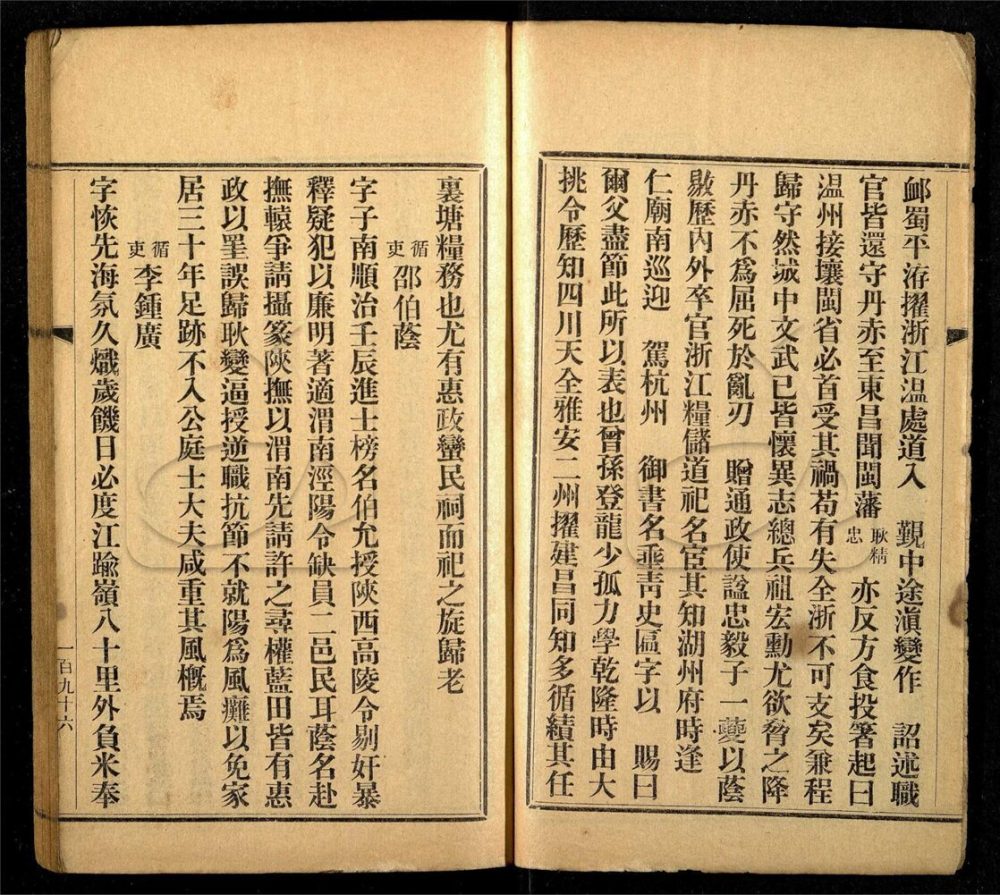 邮蜀平洊擢浙江温處道入　覲中途滇變作　詔述職
官皆還守丹赤至東昌聞閩藩耿精忠亦反方食投箸起曰
温州接壤閩省必首受其禍苟有失全浙不可支矣兼程
歸守然城中文武已皆懷異志總兵祖宏勳尤欲脅之降
丹赤不爲屈死於亂刃　贈通政使諡忠毅子一夔以蔭
敭歷內外卒官浙江糧儲道祀名宦其知湖州府時逢
仁廟南巡迎　駕杭州　御書名垂靑史匾字以　賜曰
爾父盡節此所以表也曾孫登龍少孤力學乾隆時由大
挑令歷知四川天全雅安二州擢建昌同知多循績其任
裏塘糧務也尤有惠政蠻民祠而祀之旋歸老
循吏邵伯蔭
字子南順治壬辰進士榜名伯允授陝西高陵令剔奸暴
釋疑犯以廉明著適渭南涇陽令缺員二邑民耳蔭名赴
撫轅爭請攝篆陝撫以渭南先請許之尋權藍田皆有惠
政以罣誤歸耿變逼授逆職抗節不就陽爲風癱以免家
居三十年足跡不入公庭士大夫咸重其風槪焉
循吏李鍾廣
字恢先海氛久熾歲饑日必度江踰嶺八十里外負米奉
一百九十六